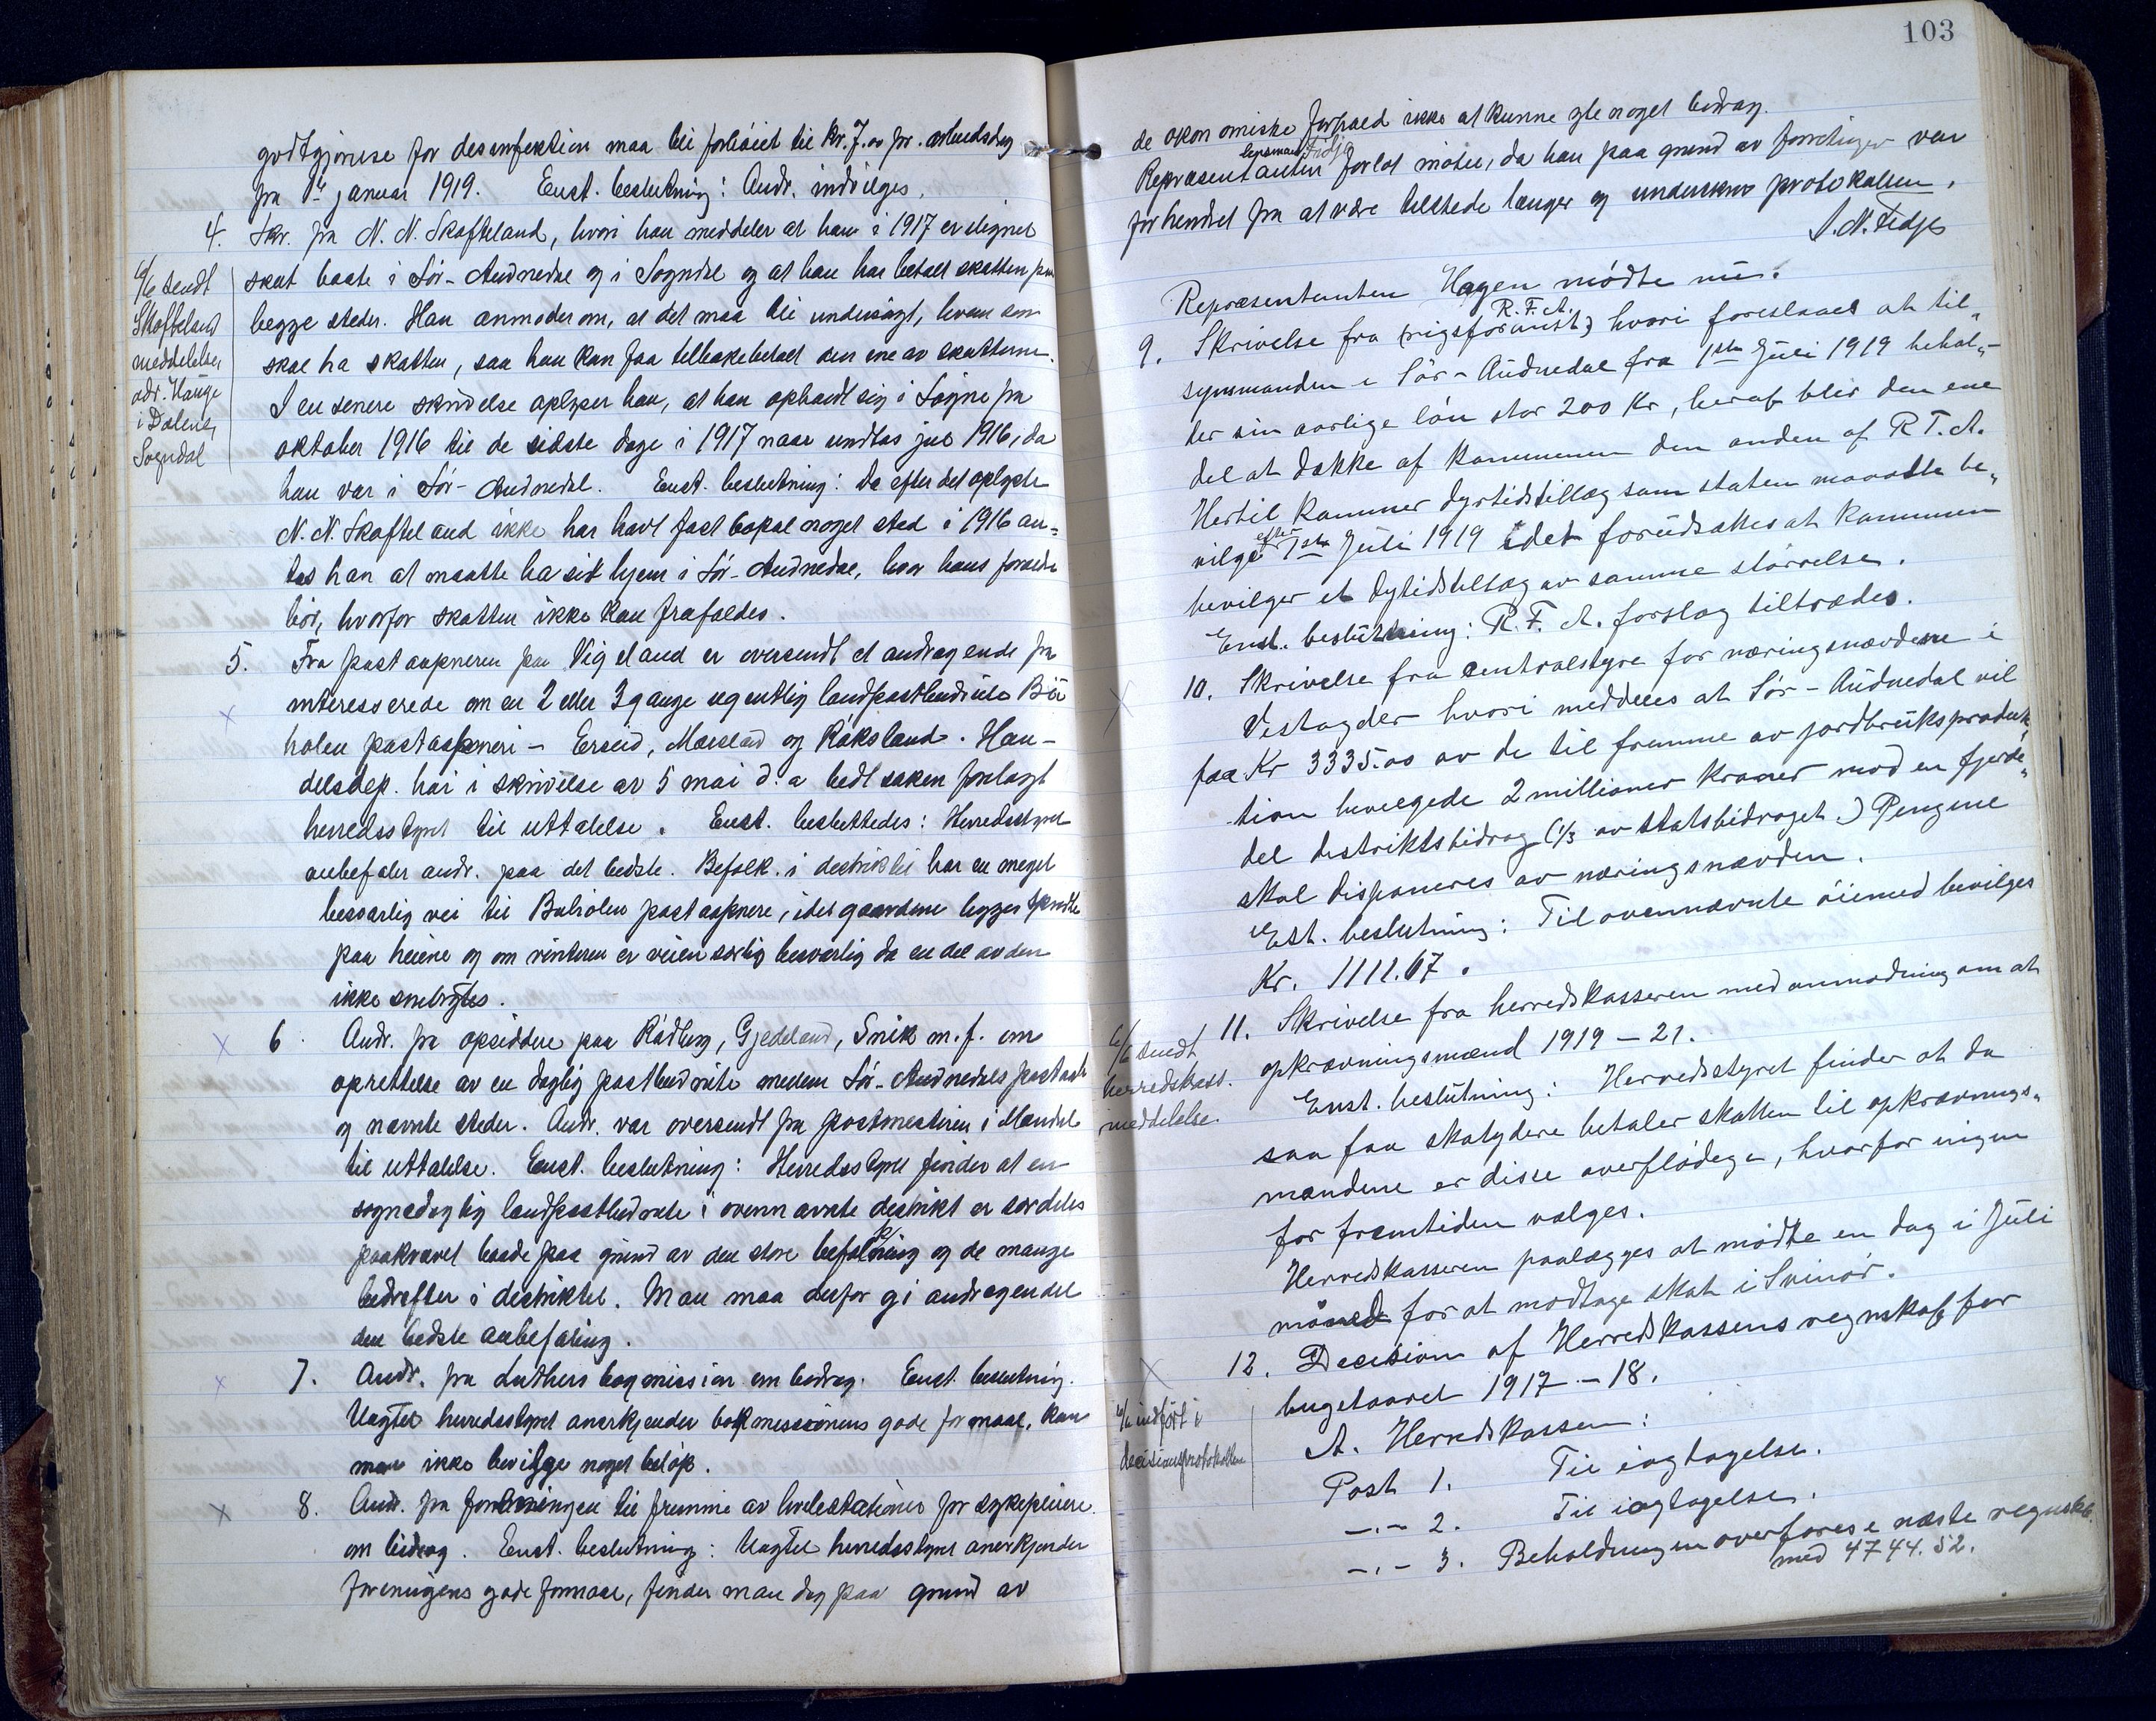 godtgjørelse for desinfektion maa bli forhøiet til kr. 7.00 pr. arbeidsdag
fra 1ste januar 1919. Enst. beslutning: Andr. indvilges.
4. Skr. fra N. N. Skofteland, hvori han meddeler at han i 1917 er lignet
skat baate i Sør-Audnedal og i Sogndal og at han har betalt skatten paa
begge steder. Han anmoder om, at det maa bli undersøgt, hvem som
skal ha skatten, saa han kan faa tilbakebetalt den ene av skatterne.
I en senere skrivelse oplyser han, at han opholdt sig i Søgne fra
oktober 1916 til de sidste dage i 1917 naar undtas jul 1916, da
han var i Sør-Audnedal. Enst. beslutning: Da efter det oplyste
N. N. Skofteland ikke har havt fast bopæl noget sted i 1916 an-
tas han at maatte ha sit hjem i Sør-Audnedal, hvor hans forældre
bor, hvorfor skatten ikke kan frafaldes.
6/6 sendt
Skofteland
meddelelse,
adr. Hauge
i Dalene,
Sogndal
5. Fra postaapneren paa Vigeland er oversendt et andragende fra
interesserede om en 2 eller 3 gange ugentlig landpostbudrute Bu
holen postaapneri - Erseid, Mæsland og Roksland. Han-
delsdep. har i skrivelse av 5 mai d. a bedt saken forelagt
herredsstyret til uttalelse. Enst. besluttedes: Herredsstyret
anbefaler andr. paa det bedste. Befolk. i distriktet har en meget
besværlig vei til Buholen postaapneri, idet gaardene ligger spredte
paa heiene og om vinteren er veien særlig besværlig da en del av den
ikke snebrøites.
6. Andr. fra opsiddere paa Rødberg, Gjeddeland, Snik m. f. om
oprettelse av en daglig postbudrute mellem Sør-Audnedals postaapn
og nævnte steder. Andr. var oversendt fra postmesteren i Mandal
til uttalelse. Enst. beslutning: Herredsstyret finder at en
sognedaglig landpostbudrute i ovennævnte distrikt er særdeles
paakrævet baade paa grund av den store befolkning og de mange
bedrifter i distriktet. Man maa derfor gi andragendet
den bedste anbefaling.
7. Andr. fra Luthers bogmission om bidrag. Enst. beslutning.
Uagtet herredsstyret anerkjender bokmissionens gode formaal, kan
man ikke bevilge noget beløp.
8. Andr. fra foreningen til fremme av hvilestationer for sykepleiere
om bidrag. Enst. beslutning: Uagtet herredsstyret anerkjender
foreningens gode formaal, finder man dog paa grund av
103
de økonomiske forhold ikke at kunne yte noget bidrag.
lensmand Fidje
Repræsentanten forlot møtet, da han paa grund av forretninger var
forhendret fra at være tilstede længer og underskrev protokollen.
S. N. Fidje
Repræsentanten Hagen mødte nu.
R.F.A.
9. Skrivelse fra (rigsforsikr.) hvori foreslaaes at til„
synsmanden i Sör-Audnedal fra 1ste Juli 1919 behol„
der sin aarlige lön stor 200 Kr, heraf blir den ene
del at dække af kommunen den anden af R T. A.
Hertil kommer dyrtidstillæg som staten maatte be„
vilge efter 1ste Juli 1919 idet forudsættes at kommunen
bevilger et dyrtidstillæg av samme störrelse.
Enst. beslutning: R. F. A. forslag tiltrædes.
10. Skrivelse fra centralstyre for næringsnævdene i
Vestagder hvori meddeles at Sör-Audnedal vil
faa Kr 3335.00 av de til fremme av jordbruksproduk„
tion bevilgede 2 millioner kroner mod en fjerde„
del distriktsbidrag (1/3 av statsbidraget.) Pengene
skal disponeres av næringsnævden.
Est. beslutning: Til ovennævnte öiemed bevilges
Kr. 1111.67.
6/6 sendt
herredskass.
meddelelse.
11. Skrivelse fra herredskasseren med anmodning om at
opkrævningsmænd 1919-21.
Enst. beslutning: Herredsstyret finder at da
saa faa skatydere betaler skatten til opkrævnings„
mændene er disse overflödige, hvorfor ingen
for fremtiden vælges.
Herredskasseren paalægges at mödte en dag i Juli
måned for at modtage skat i Svinör.
12. Decision af Herredskassens regnskab for
bugetaaret 1917-18.
6/6 indført i
decisionsprotokollen
A. Herredskassen:
Post 1. Til iagtagelse.
-"- 2. Til iagtagelse.
-"- 3. Beholdningen overføres i næste regnskab.
med 4744.52.